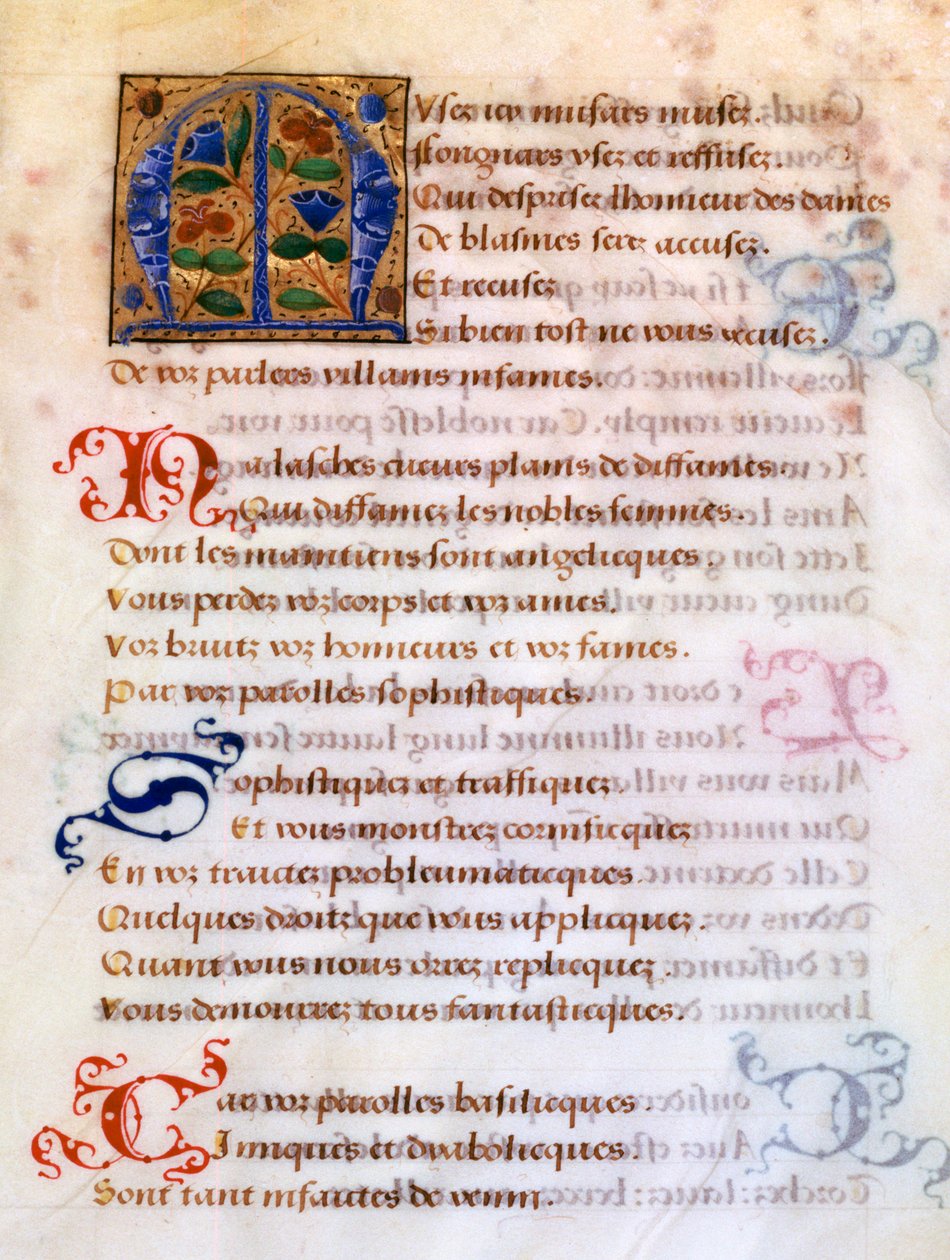 MUsez icy musars musez.
Hongnars vsez et reffusez.
Qui desprisez lhonneur des dames
De blasmes serez accusez.
Et recusez
Si bien tost ne vous excusez.
De voz parlers villains infames.
Ha lasches cueurs plains de diffames.
Qui diffamez les nobles femmes.
Dont les maintiens sont angelicques.
Vous perdez voz corps et voz ames.
Voz bruitz voz honneurs et voz fames.
Par voz parolles sophistiques.
Sophistiquez et traffiquez
Et vous monstrez cornificquez
En voz traictez probleumaticques.
Quelques droitz que vous applicquez.
Quant vous nous orrez replicquez.
Vous demourrez tous fantasticques.
Car voz parolles basilicques.
Inniques et diabolicques.
Sont tant infaictes de venin.